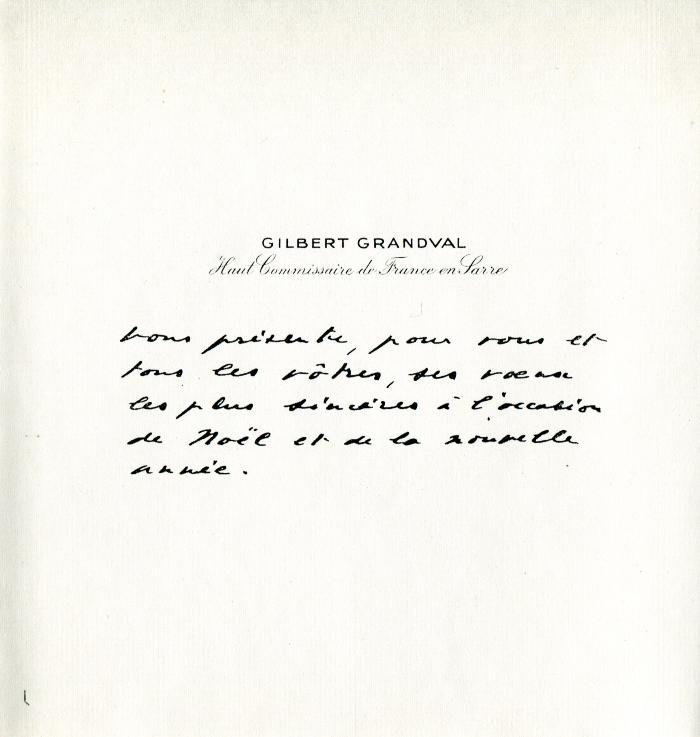 GILBERT GRANDVAL
Haut Commissaire de France en Sarre
vous présente, pour vous et
tous les vôtres, ses vœux
les plus sincères à l'occasion
de Noël et de la nouvelle
année.